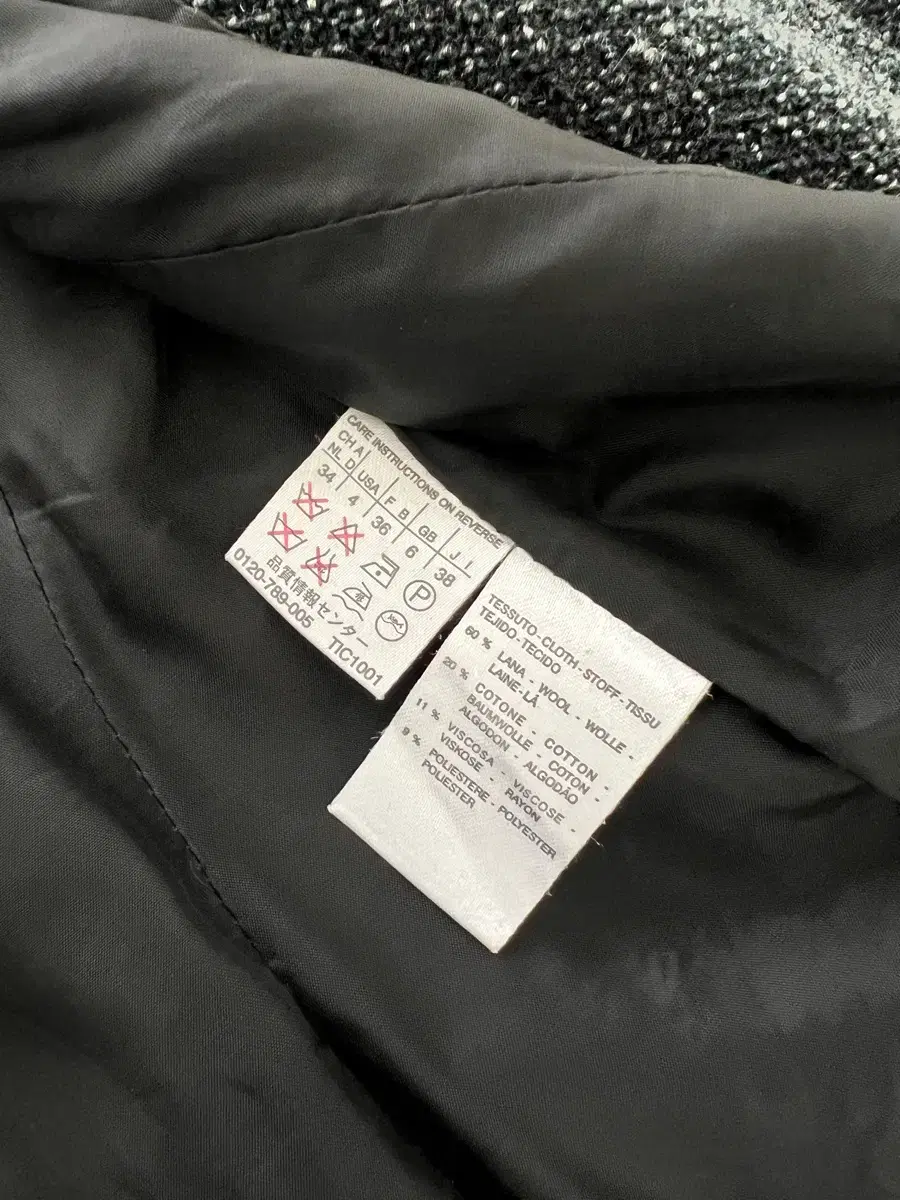 CARE INSTRUCTIONS ON REVERSE
CH A
NL D
USA
F B
GB
J I
34
4
36
6
38
P
品質情報センター
0120-789-005 TIC1001
TESSUTO-CLOTH-STOFF-TISSU
TEJIDO-TECIDO
60 % LANA - WOOL - WOLLE -
LAINE-LÃ
20 % COTONE - COTTON
BAUMWOLLE - COTON -
ALGODON - ALGODÃO
11 % VISCOSA - VISCOSE -
VISKOSE - RAYON
9 % POLIESTERE - POLYESTER
POLIESTER